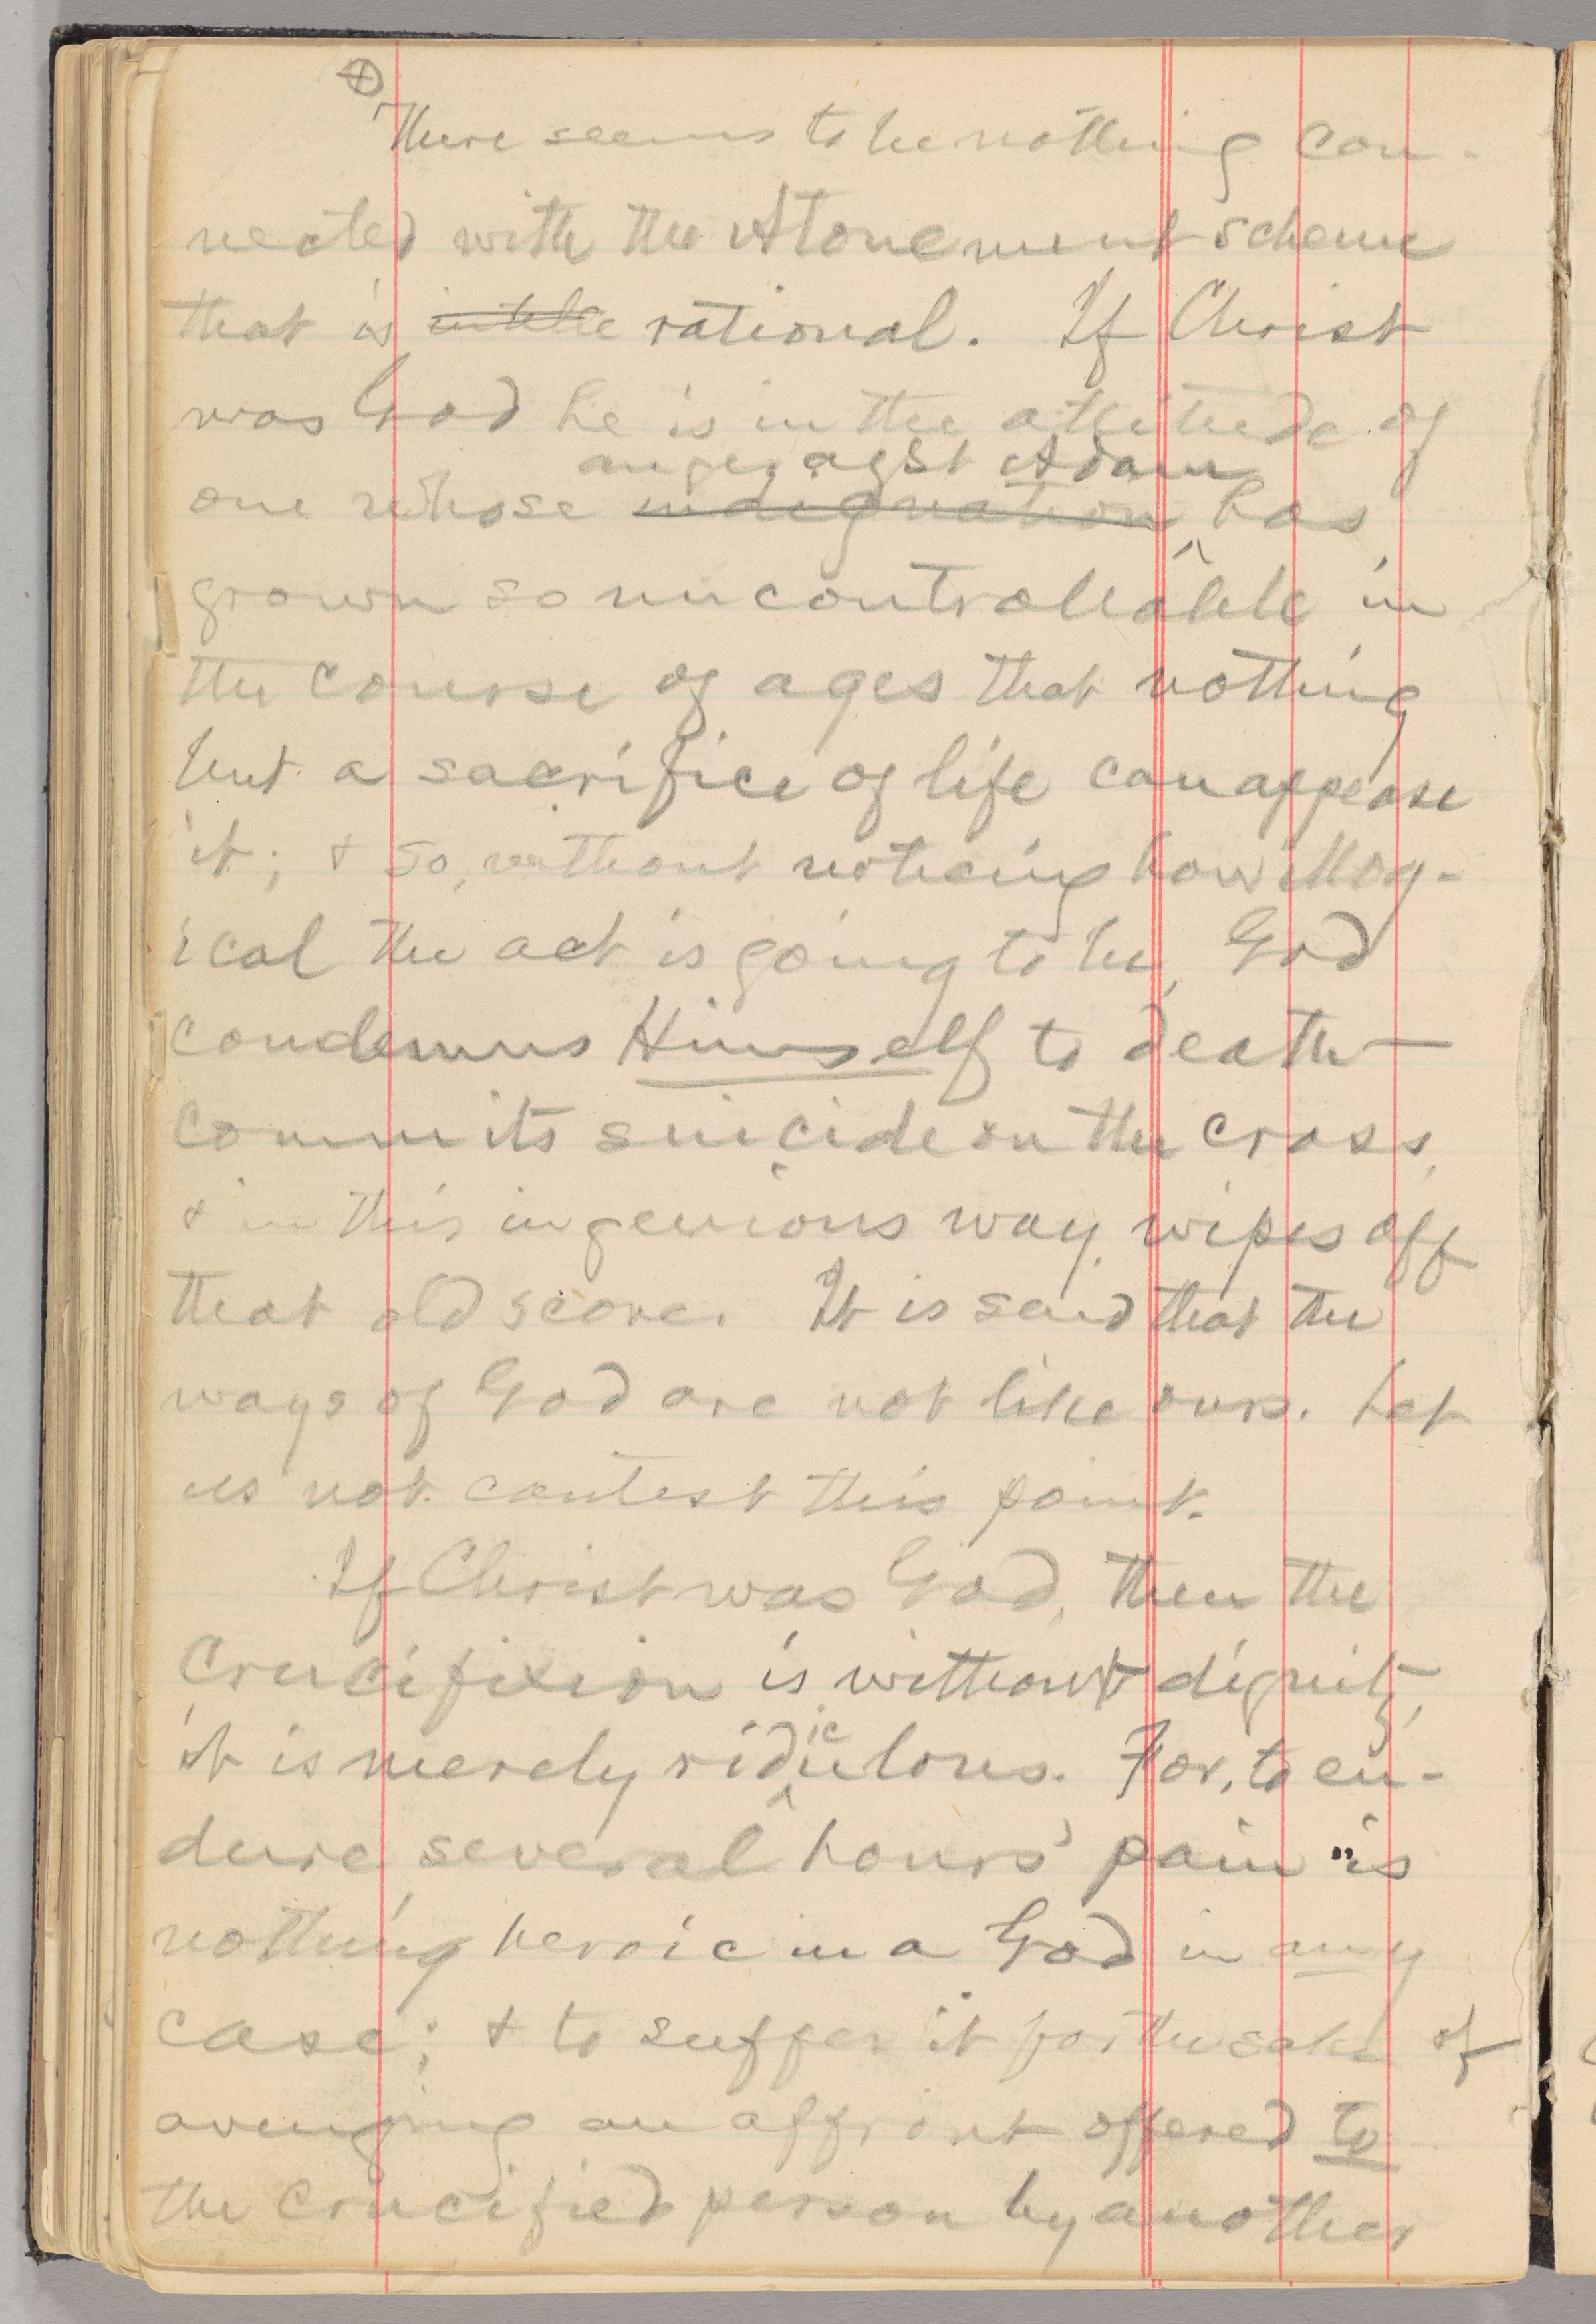 ⊕
There seems to be nothing con-
nected with the Atonement scheme
that is intelle rational. If Christ
was God he is in the attitude of
anger agst Adam
one whose indignation has
grown so uncontrollable in
the course of ages that nothing
but a sacrifice of life can appease
it; & so, without noticing how illog-
ical the act is going to be, God
condemns Himself to death —
commits suicide on the cross,
& in this ingenious way wipes off
that old score. It is said that the
ways of God are not like ours. Let
us not contest this point.
If Christ was God, then the
crucifixion is without dignity,
it is merely ridiculous. For, to en-
dure several hours' pain is
nothing heroic in a God in any
case; & to suffer it for the sake of
avenging an affront offered to
the crucified person by another